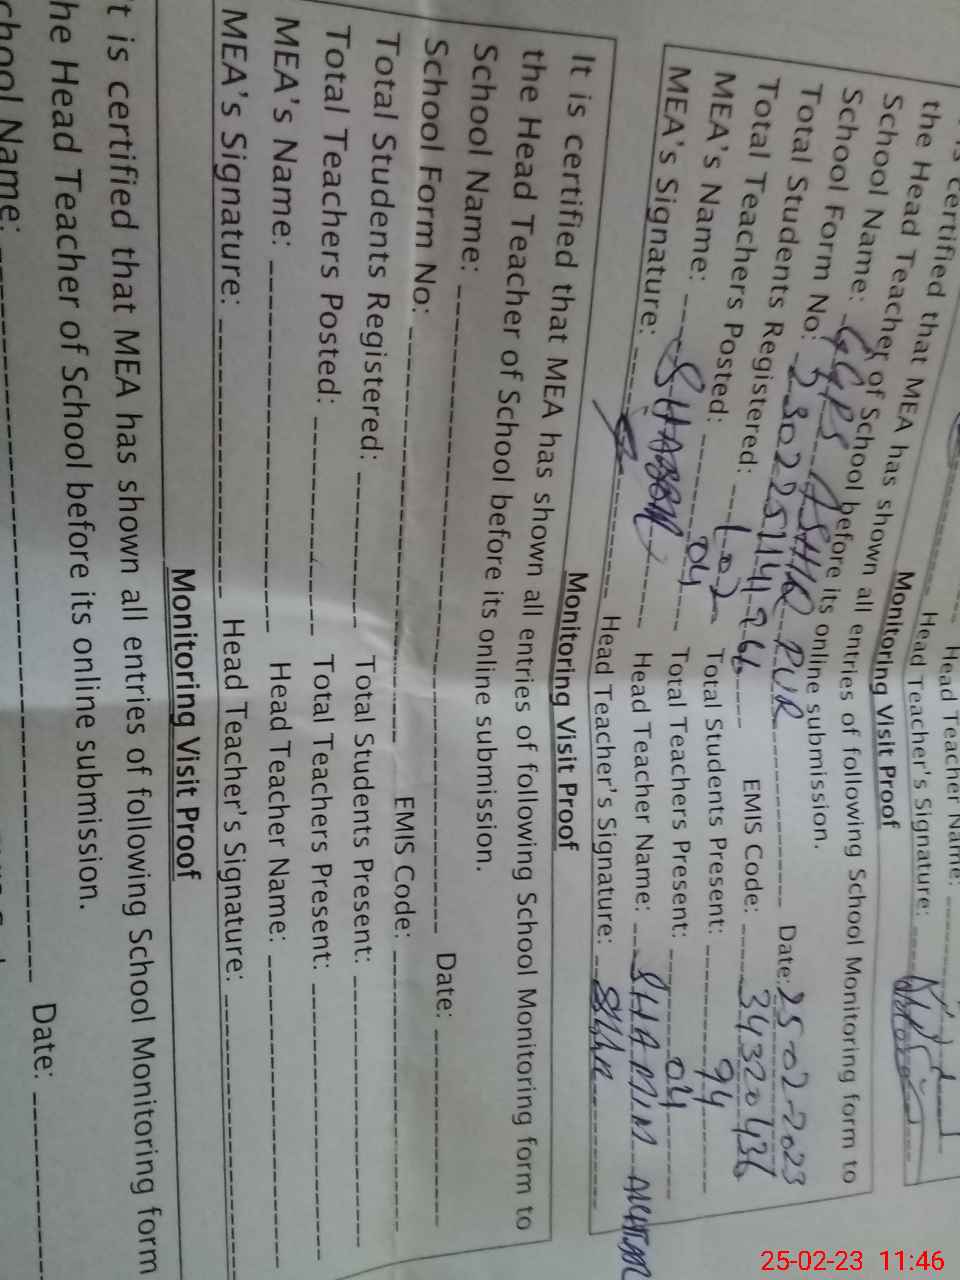 Head Teacher Name:
Head Teacher's Signature:
Monitoring Visit Proof
is certified that MEA has shown all entries of following School Monitoring form to
the Head Teacher of School before its online submission.
School Name: GGPS ASHIQ PUR Date: 25-02-2023
School Form No: EMIS Code: 34320436
Total Students Registered: 107 Total Students Present: 94
Total Teachers Posted: 04 Total Teachers Present: 04
MEA's Name: Head Teacher Name: SHAMIM AKHTAR
MEA's Signature: Head Teacher's Signature:
Monitoring Visit Proof
It is certified that MEA has shown all entries of following School Monitoring form to
the Head Teacher of School before its online submission.
School Name: Date:
School Form No: EMIS Code:
Total Students Registered: Total Students Present:
Total Teachers Posted: Total Teachers Present:
MEA's Name: Head Teacher Name:
MEA's Signature: Head Teacher's Signature:
Monitoring Visit Proof
t is certified that MEA has shown all entries of following School Monitoring form
he Head Teacher of School before its online submission.
chool Name: Date:
25-02-23 11:46